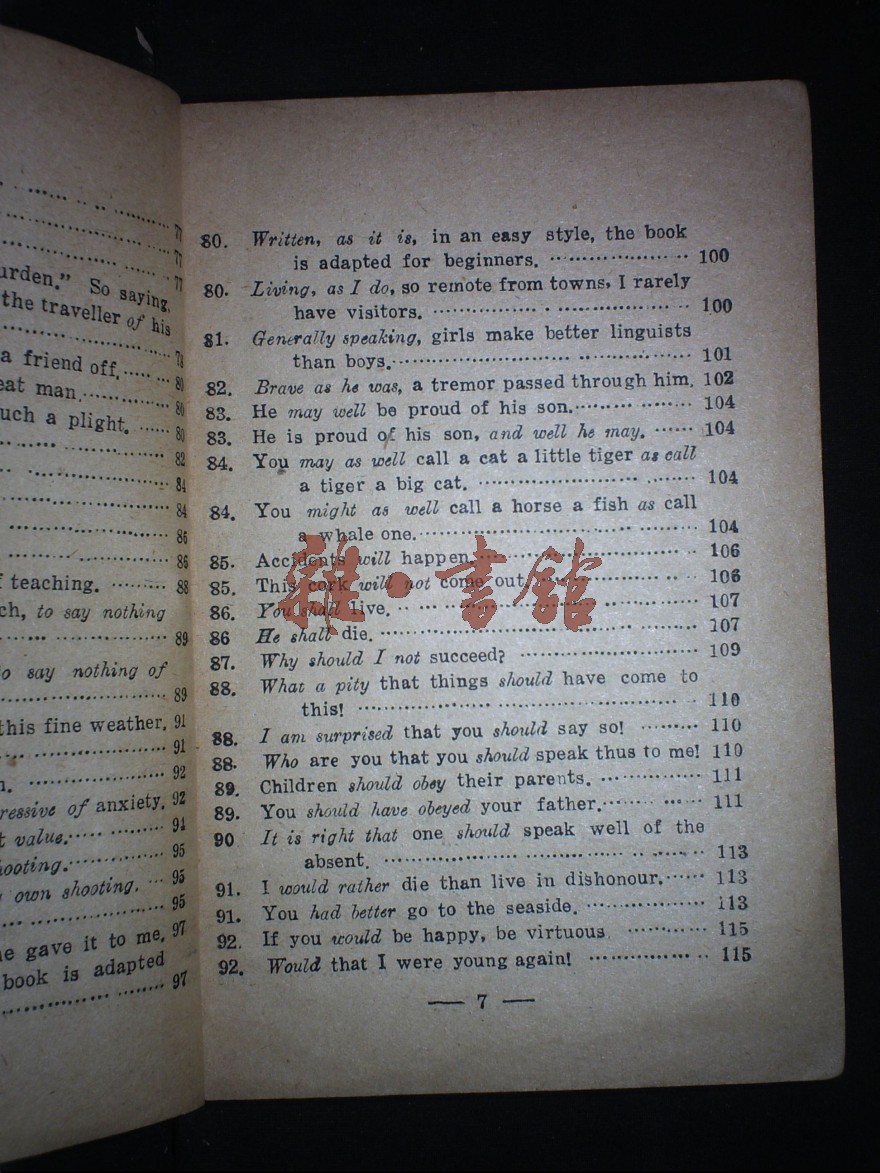 77
77
77
urden." So saying,
the traveller of his
78
a friend off. 80
eat man. 80
uch a plight. 80
82
84
84
86
86
f teaching. 88
ch, to say nothing
89
o say nothing of
89
this fine weather, 91
91
n. 92
ressive of anxiety. 92
t value. 94
hooting. 95
own shooting. 95
95
e gave it to me. 97
book is adapted
97
80. Written, as it is, in an easy style, the book
is adapted for beginners. 100
80. Living, as I do, so remote from towns, I rarely
have visitors. 100
81. Generally speaking, girls make better linguists
than boys. 101
82. Brave as he was, a tremor passed through him. 102
83. He may well be proud of his son. 104
83. He is proud of his son, and well he may. 104
84. You may as well call a cat a little tiger as call
a tiger a big cat. 104
84. You might as well call a horse a fish as call
a whale one. 104
85. Accidents will happen. 106
85. This cork will not come out. 106
86. You shall live. 107
86 He shall die. 107
87. Why should I not succeed? 109
88. What a pity that things should have come to
this! 110
88. I am surprised that you should say so! 110
88. Who are you that you should speak thus to me! 110
89. Children should obey their parents. 111
89. You should have obeyed your father. 111
90 It is right that one should speak well of the
absent. 113
91. I would rather die than live in dishonour. 113
91. You had better go to the seaside. 113
92. If you would be happy, be virtuous 115
92. Would that I were young again! 115
— 7 —
雜·書館